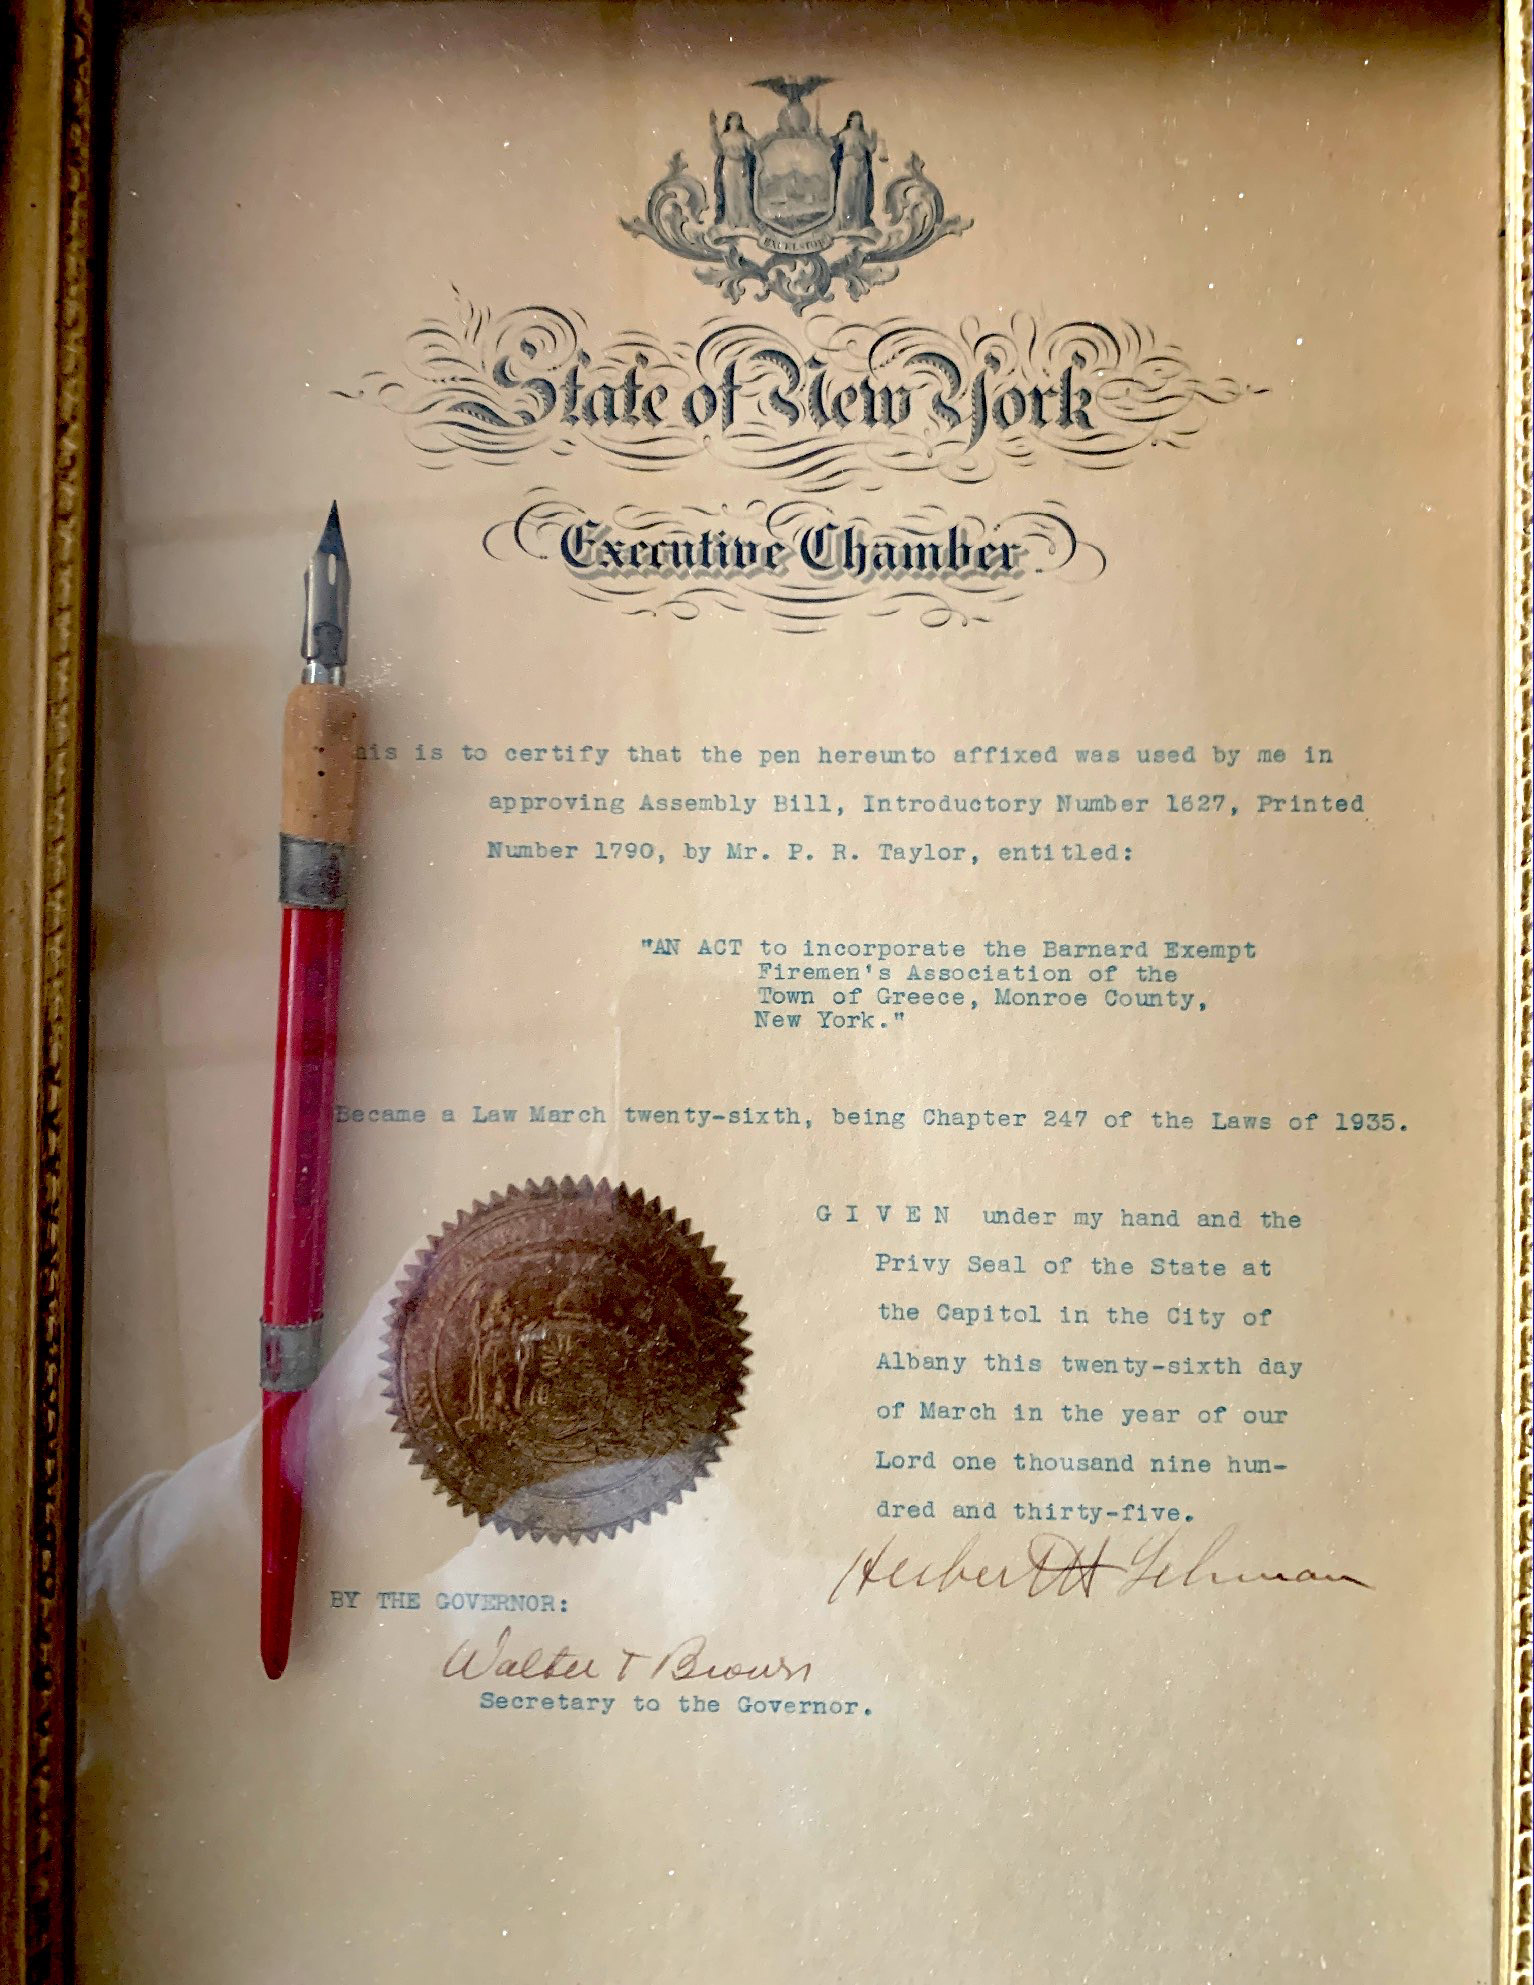 EXCELSIOR
State of New York
Executive Chamber.
his is to certify that the pen hereunto affixed was used by me in
approving Assembly Bill, Introductory Number 1627, Printed
Number 1790, by Mr. P. R. Taylor, entitled:
"AN ACT to incorporate the Barnard Exempt
Firemen's Association of the
Town of Greece, Monroe County,
New York."
Became a Law March twenty-sixth, being Chapter 247 of the Laws of 1935.
G I V E N under my hand and the
Privy Seal of the State at
the Capitol in the City of
Albany this twenty-sixth day
of March in the year of our
Lord one thousand nine hun-
dred and thirty-five.
Herbert H Lehman
BY THE GOVERNOR:
Walter T Brown
Secretary to the Governor.